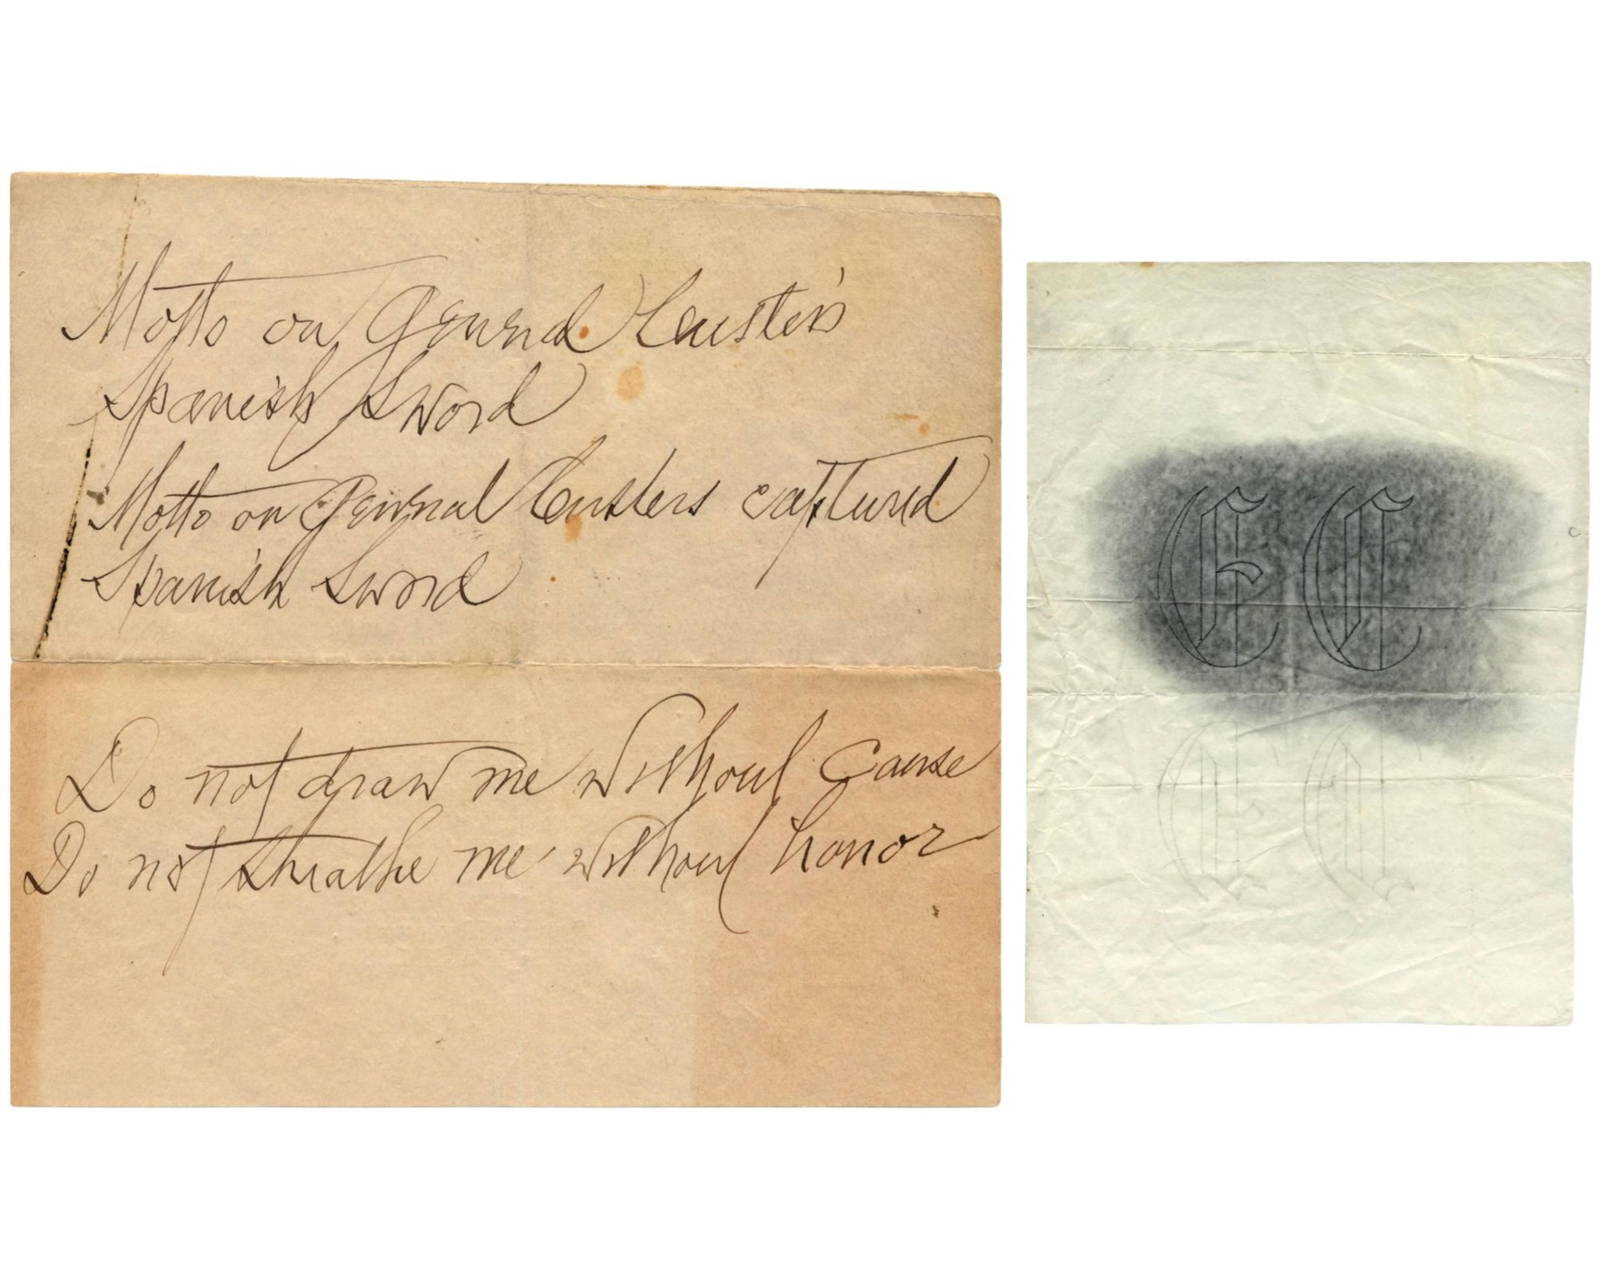 Motto on General Custer's
Spanish Sword
Motto on General Custers captured
Spanish Sword
Do not draw me without cause
Do not sheathe me without honor
E C
E C